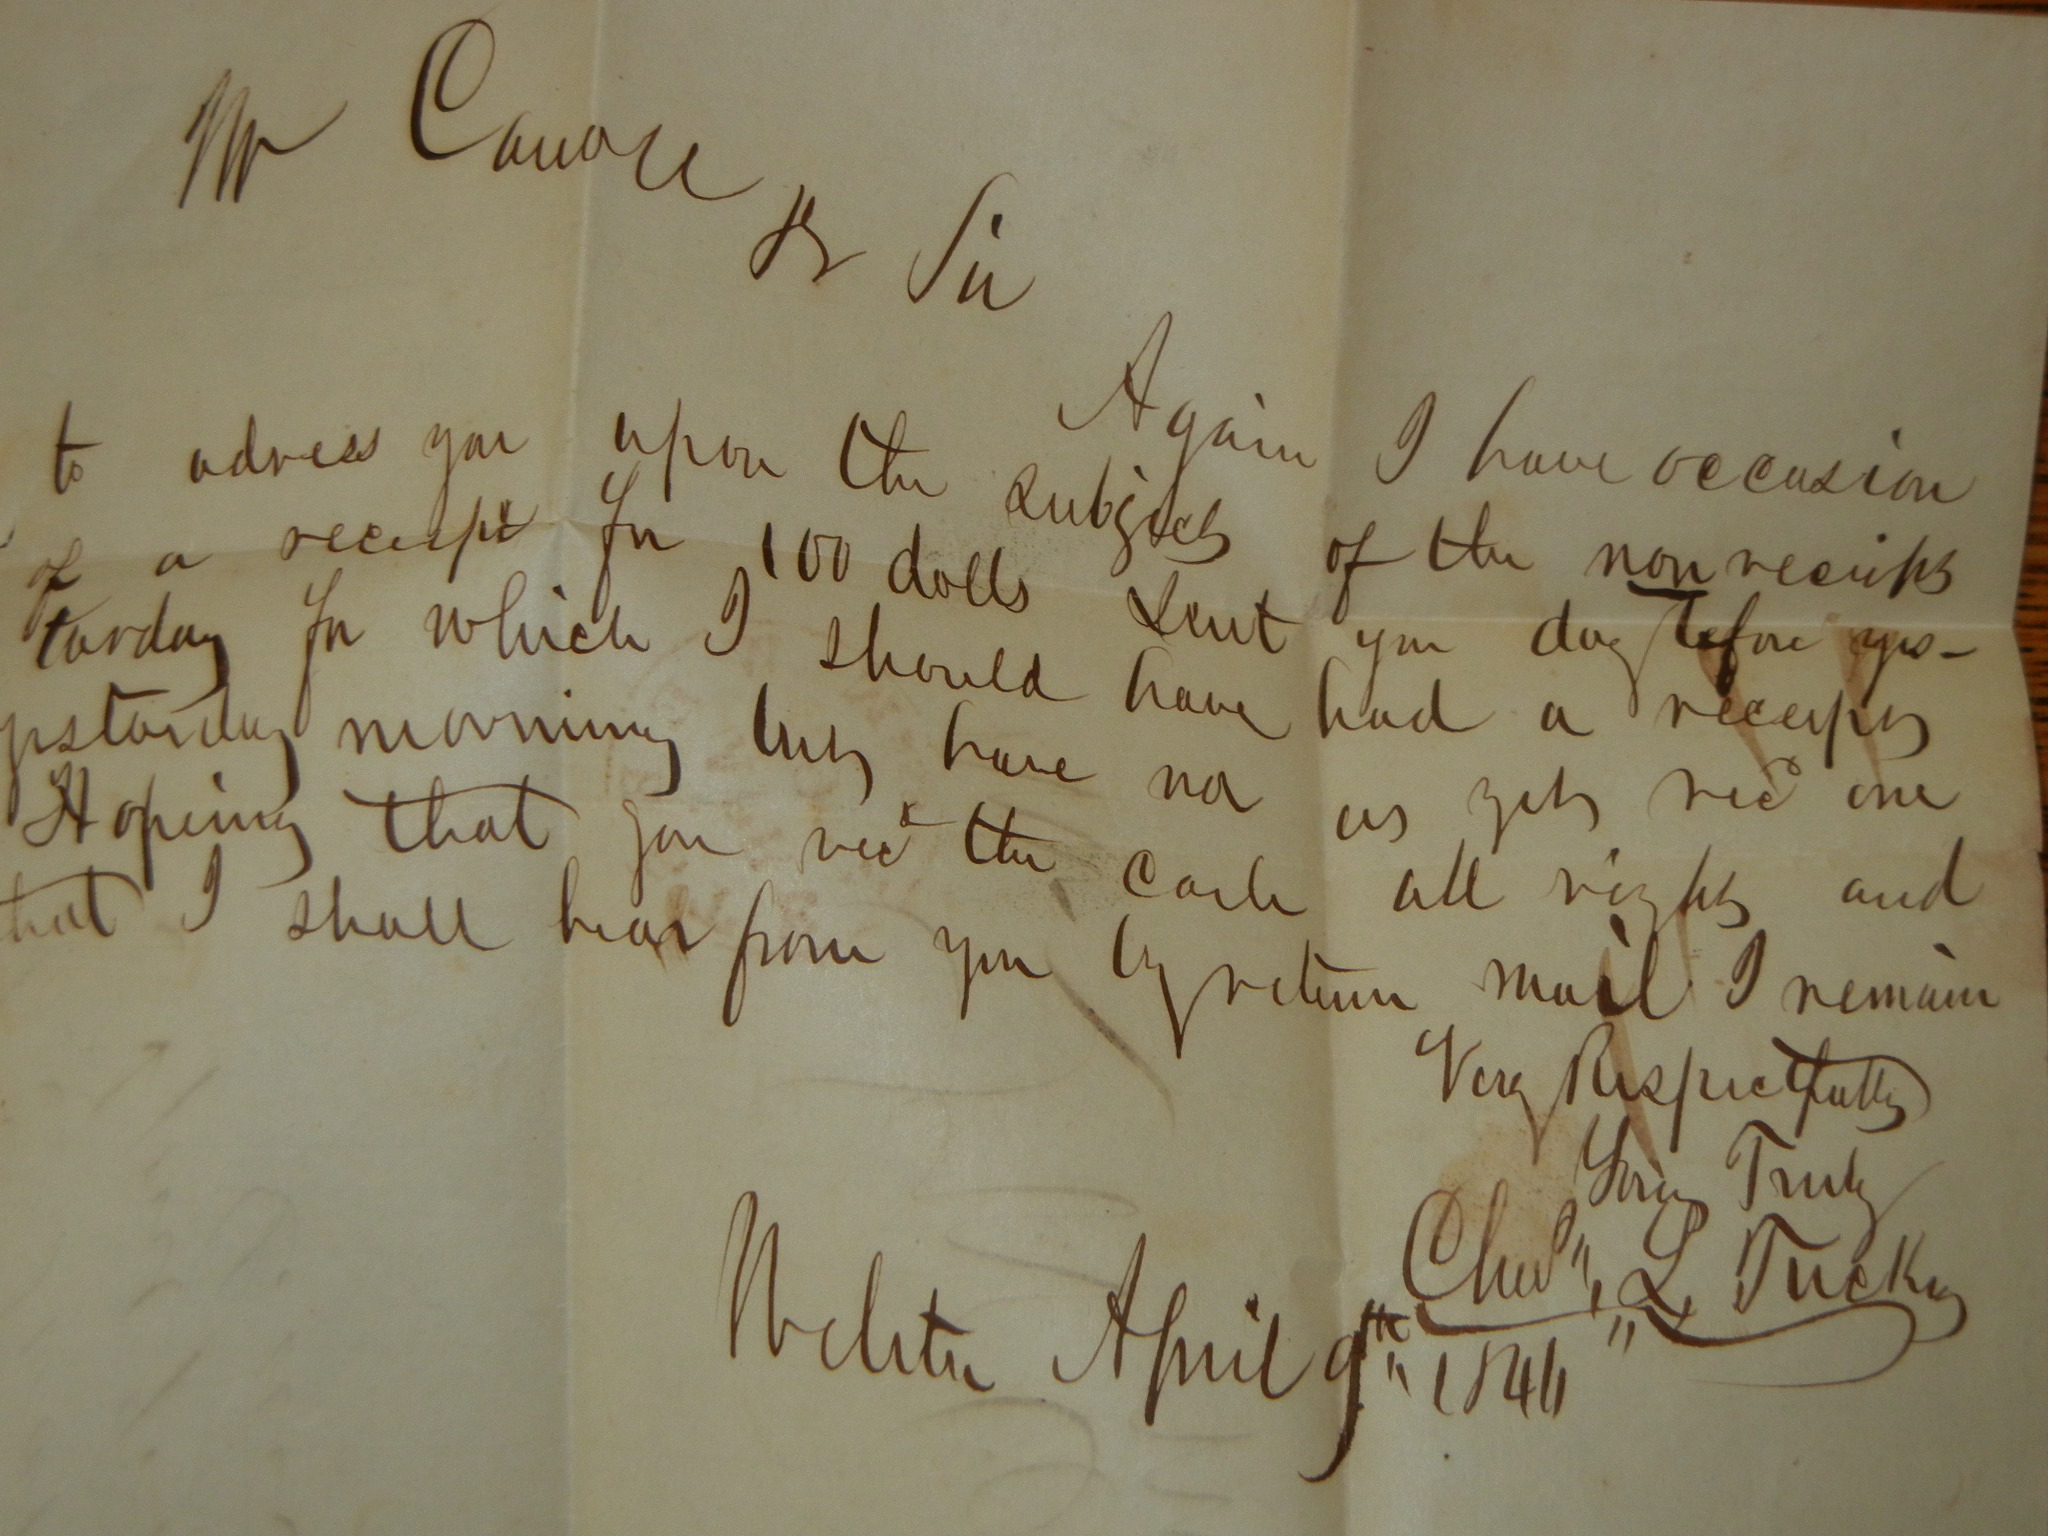 Mr
Dr Sir
Again I have occasion
to adress you upon the subject of the non receipt
of a receipt for 100 dolls sent you day before yes-
tarday for which I should have had a receipt
yestarday morning but have not as yet recd one
Hoping that you recd the cash all right and
that I shall hear from you by return mail I remain
Very Respectfully
Yours Truly
Chas" L Tucker
Webster April 9th" 1846"